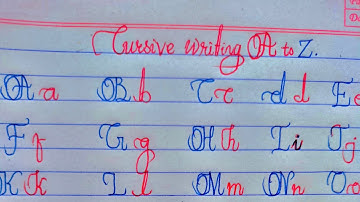 Cursive writing A to Z.
A a B b C c d d E e
F f G g H h I i J j
K k L l M m N n O o